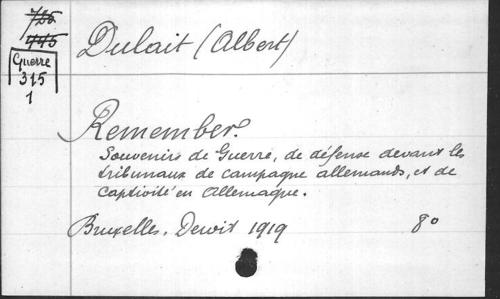 Dulait (Albert)
Guerre
315
1
Remember.
Souvenirs de Guerre, de défense devant les
tribunaux de campagne allemands, et de
captivité en Allemagne.
Bruxelles, Dewit 1919 8°